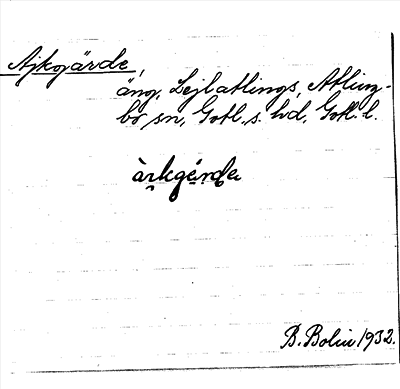 Ajkgärde,
äng, Lejlatlings, Atling-
bo sn, Gotl. s. hd, Gotl. l.
àrkgérde
B. Bolin 1932.